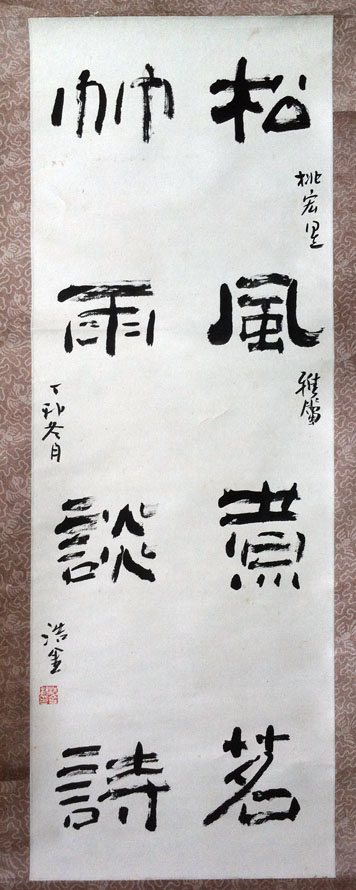 松風煮茗
竹雨談詩
桃宏里
雅屬
丁卯冬月
浩金